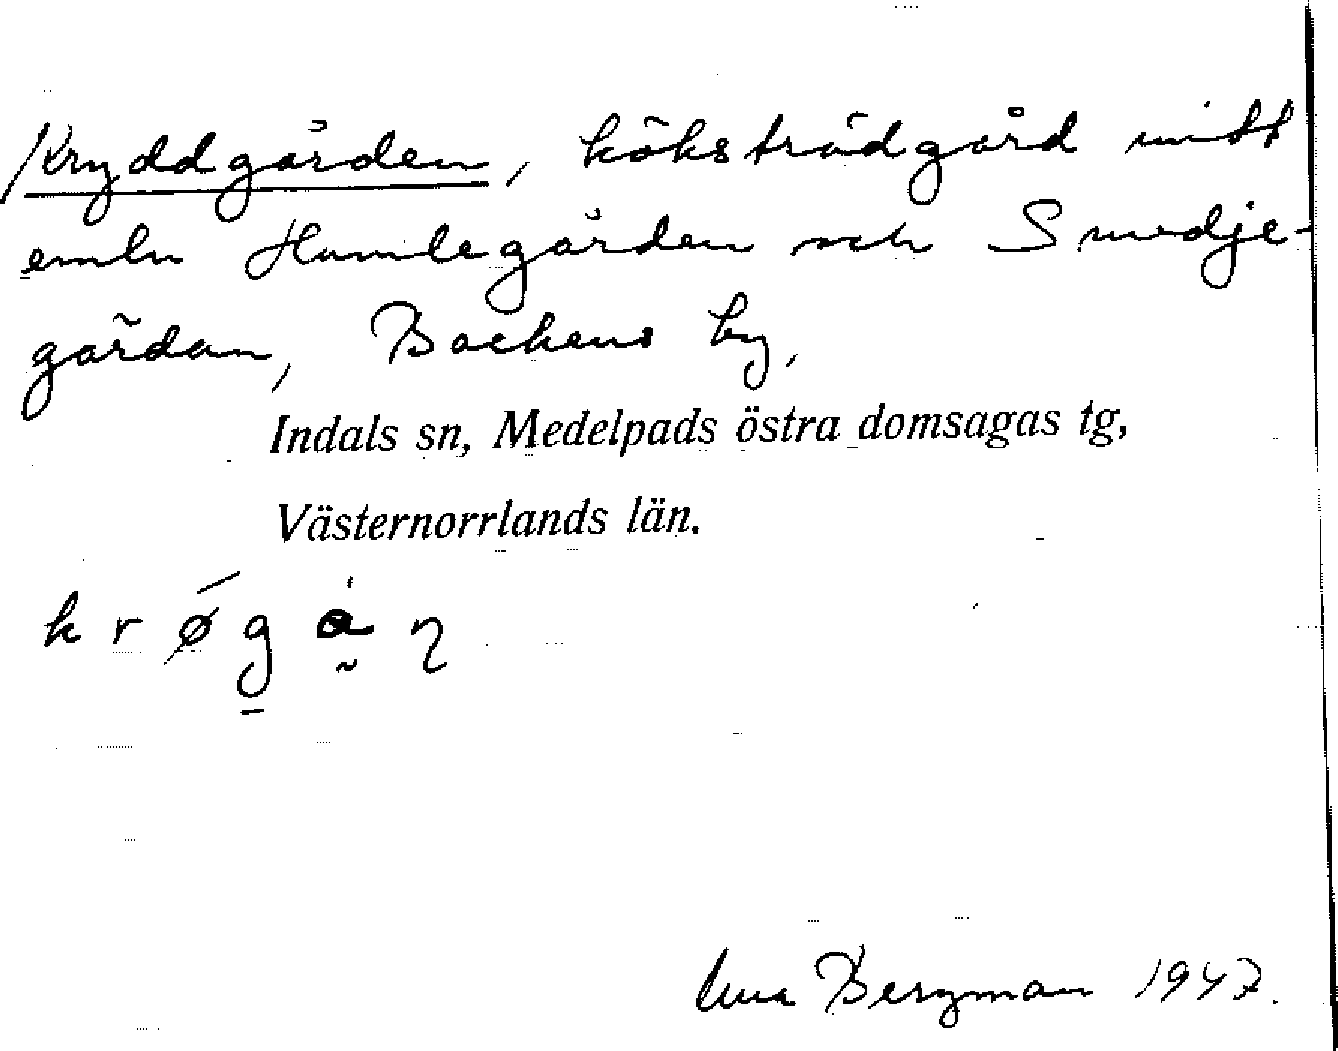 Kryddgården, köksträdgård mitt
emln Humlegården och Smedje-
gårdan, Backens by,
Indals sn, Medelpads östra domsagas tg,
Västernorrlands län.
k r ø g a̰ n
Bergman 1947.